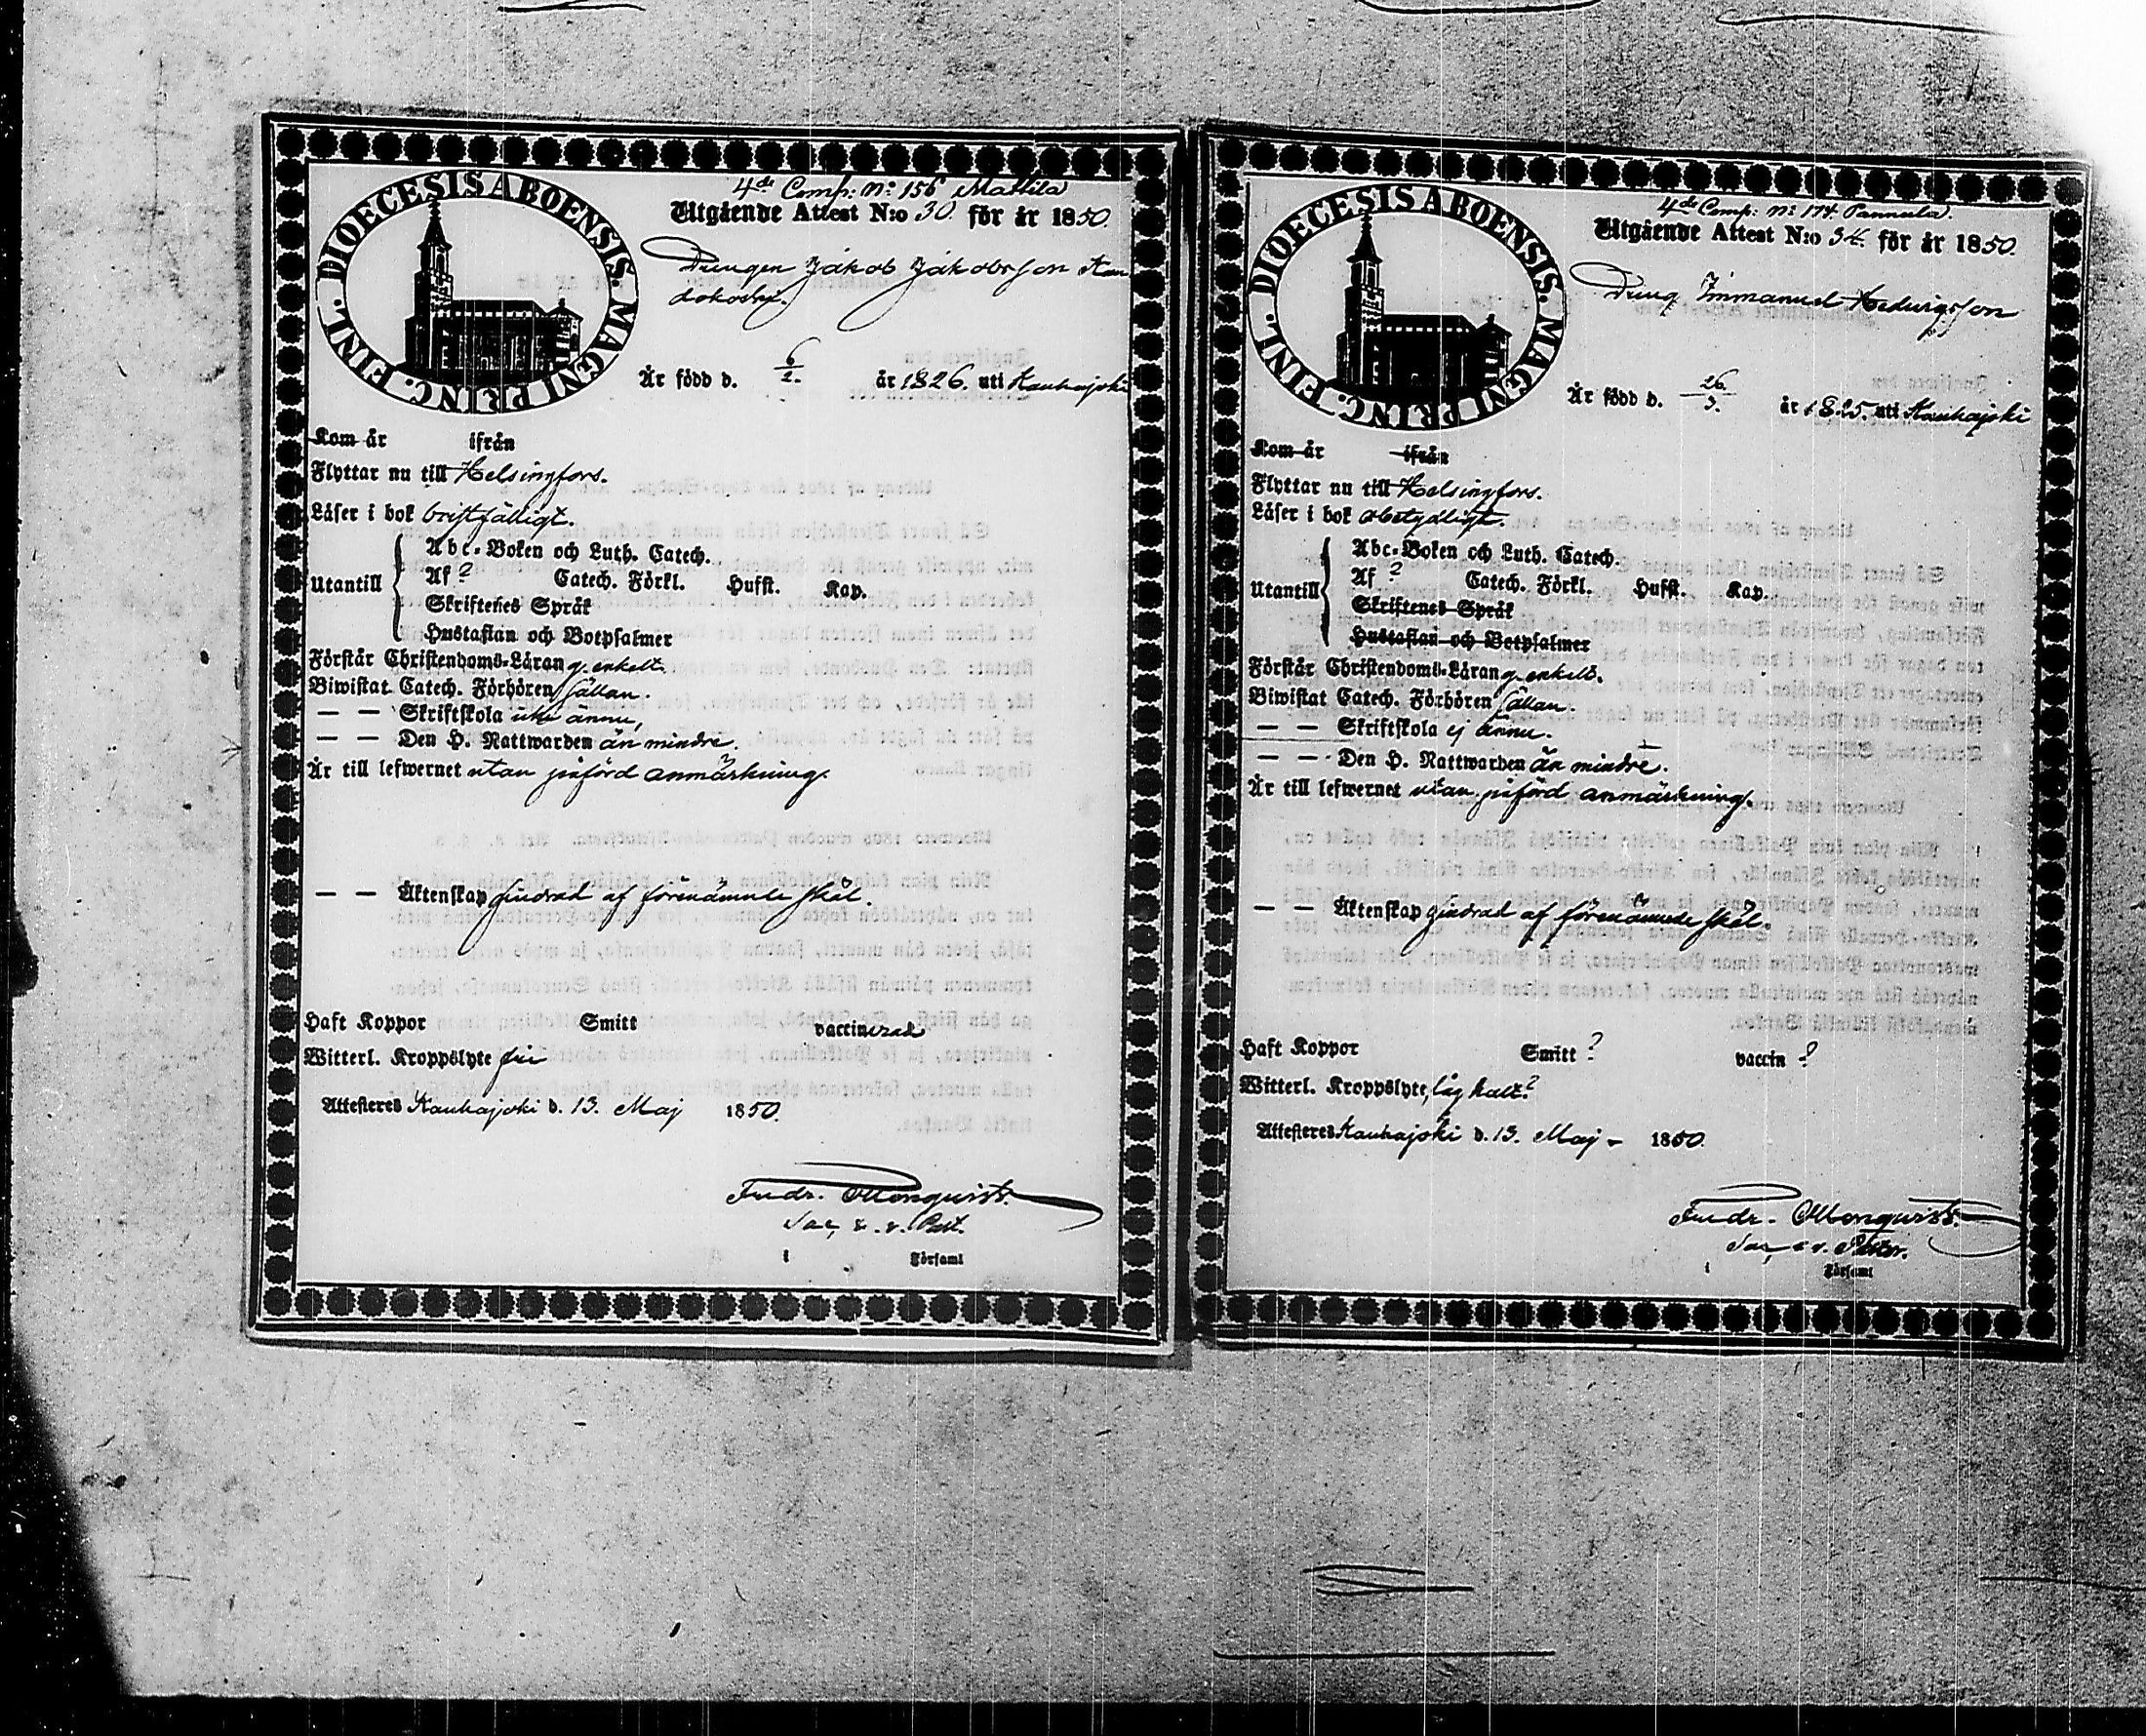 DIOECESIS ABOENSIS. MAGNI PRINC. FINL.
4de Comp: No 156 Mattila
Utgående Attest N:o 30. för år 1850.
Drengen Jakob Jakobsson Kan
dokoski.
Är född d. 6/2. år 1826. uti Kauhajoki
Kom år ifrån
Flyttar nu till Helsingfors.
Läser i bok bristfälligt.
Utantill
Abc-Boken och Luth. Catech.
Af ? Catech. Förkl. Hufst. Kap.
Skriftenes Språk
Hustaflan och Botpsalmer
Förstår Christendoms-Läran g. enkelt.
Biwistat Catech. Förhören sällan.
— — Skriftskola icke ännu,
— — Den H. Nattwarden än mindre.
Är till lefwernet utan påförd anmärkning.
— — Äktenskap hindrad af förenämnde skäl.
Haft Koppor Smitt vaccinerad
Witterl. Kroppslyte fri
Attesteres Kauhajoki d. 13. Maj 1850.
Fredr. 
Sac, & v. Past.
i Församl
DIOECESIS ABOENSIS. MAGNI PRINC. FINL.
4de Comp: No 174. Pannula.
Utgående Attest N:o 34. för år 1850.
Dreng Immanuel Hedvigsson
Är född d. 26./3. år 1825. uti Kauhajoki
Kom år ifrån
Flyttar nu till Helsingfors.
Läser i bok obetydligt.
Utantill
Abc-Boken och Luth. Catech.
Af ? Catech. Förkl. Hufst. Kap.
Skriftenes Språk
Hustaflan och Botpsalmer
Förstår Christendoms-Läran g. enkelt.
Biwistat Catech. Förhören sällan.
— — Skriftskola ej ännu.
— — Den H. Nattwarden än mindre.
Är till lefwernet utan påförd anmärkning.
— — Äktenskap hindrad af förenämnde skäl.
Haft Koppor Smitt ? vaccin ?
Witterl. Kroppslyte, låg halt?
Attesteres Kauhajoki d. 13. Maj - 1850.
Fredr. 
Sac, & v. Pastor.
i Församl